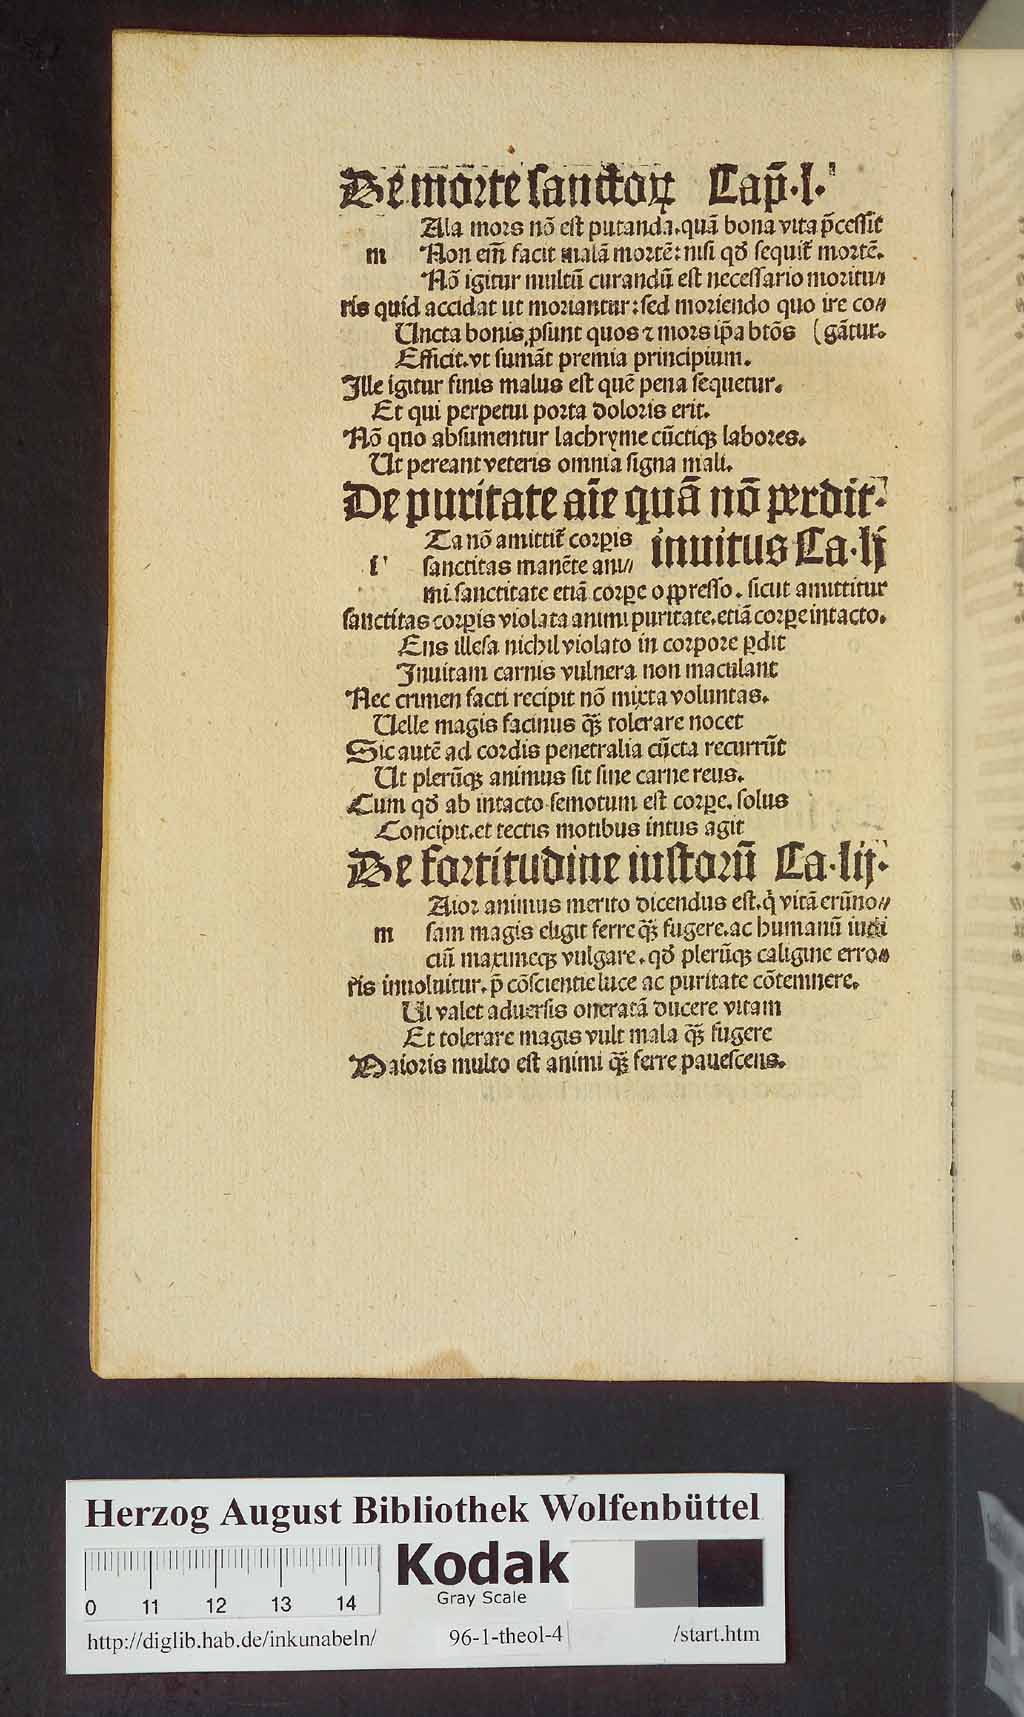 De morte sanctoꝝ Cap̄.l.
Ala mors nō est putanda.quā bona vita p̄cessit̄
m Non em̄ facit malā mortē: nisi qď sequit̄ mortē.
Nō igitur multū curandū est necessario moritu⸗
ris quid accidat ut moriantur: sed moriendo quo ire co⸗
Uncta bonis ꝓsunt quos ⁊ mors ip̄a btōs (gātur.
Efficit.vt sumāt premia principium.
Ille igitur finis malus est quē pena sequetur.
Et qui perpetui porta doloris erit.
Nō quo absumentur lachryme cūctiqꝫ labores.
Ut pereant veteris omnia signa mali.
De puritate aīe quā nō ꝑdit
Ta nō amittit̄ corꝑis inuitus Ca.lj
ſ sanctitas manēte ani⸗
mi sanctitate etiā corꝑe oꝓresso. sicut amittitur
sanctitas corꝑis violata animi puritate.etiā corꝑe intacto.
Ens illesa nichil violato in corpore ꝑdit
Inuitam carnis vulnera non maculant
Nec crimen facti recipit nō mixta voluntas.
Uelle magis facinus qꝫ̄ tolerare nocet
Sic autē ad cordis penetralia cūcta recurrūt
Ut plerūqꝫ animus sit sine carne reus.
Cum qď ab intacto semotum est corꝑe. solus
Concipit.et tectis motibus intus agit
De fortitudine iustorū Ca.lij.
Aior animus merito dicendus est.q̇ vitā erūno⸗
m sam magis eligit ferre qꝫ̄ fugere.ac humanū iudi
ciū maximeqꝫ vulgare.qď plerūqꝫ caligine erro⸗
ris inuoluitur.p̄ cōscientie luce ac puritate cōtemnere.
Ui valet aduersis oneratā ducere vitam
Et tolerare magis vult mala qꝫ̄ fugere
Maioris multo est animi qꝫ̄ ferre pauescens.
Herzog August Bibliothek Wolfenbüttel
Kodak
Gray Scale
0 11 12 13 14
http://diglib.hab.de/inkunabeln/ 96-1-theol-4 /start.htm